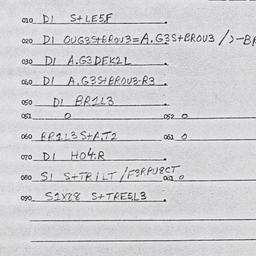 010 DI S+LE5,F
020 DI OUG3S+BROU3=A.G3S+BROU3/2-BR
030 DI A.G3DEK2L
040 DI A.G3S+BROU3-R3
050 DI BR1L3
051 0 052 0
060 BR1L3S+A,T2 061 0
070 DI HO4:R
080 SI S+TRILT/F3RPU8CT 081 0
090 S1X28 S+TRE5L3